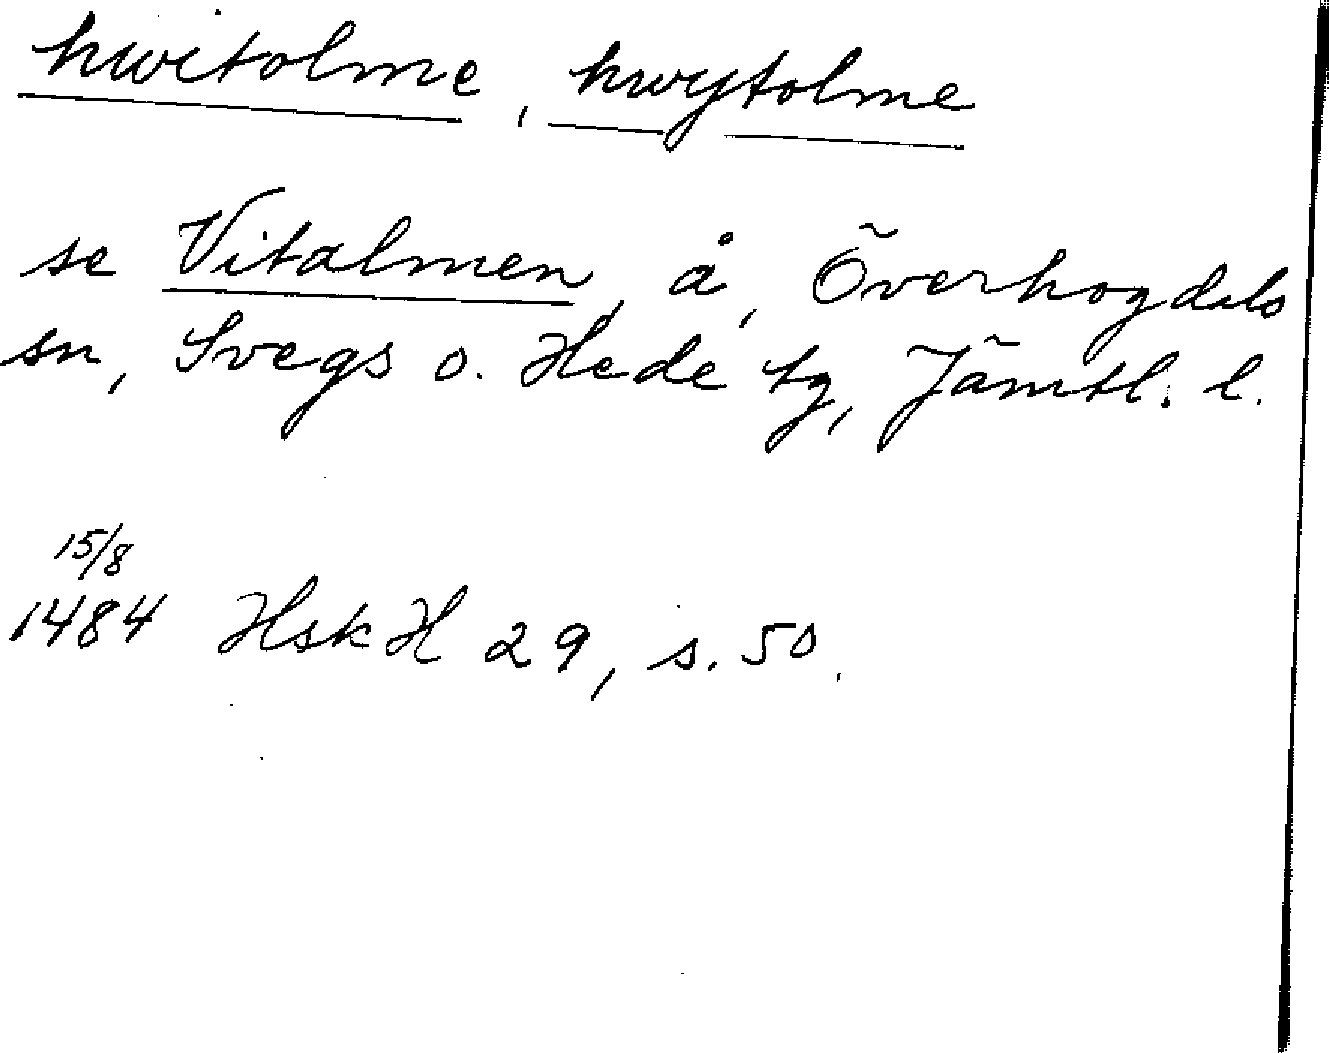 hwitolme, hwytolme
se Vitalmen, å, Överhogdals
sn, Svegs o. Hede tg, Jämtl. l.
15/8
1484 HskH 29, s. 50.